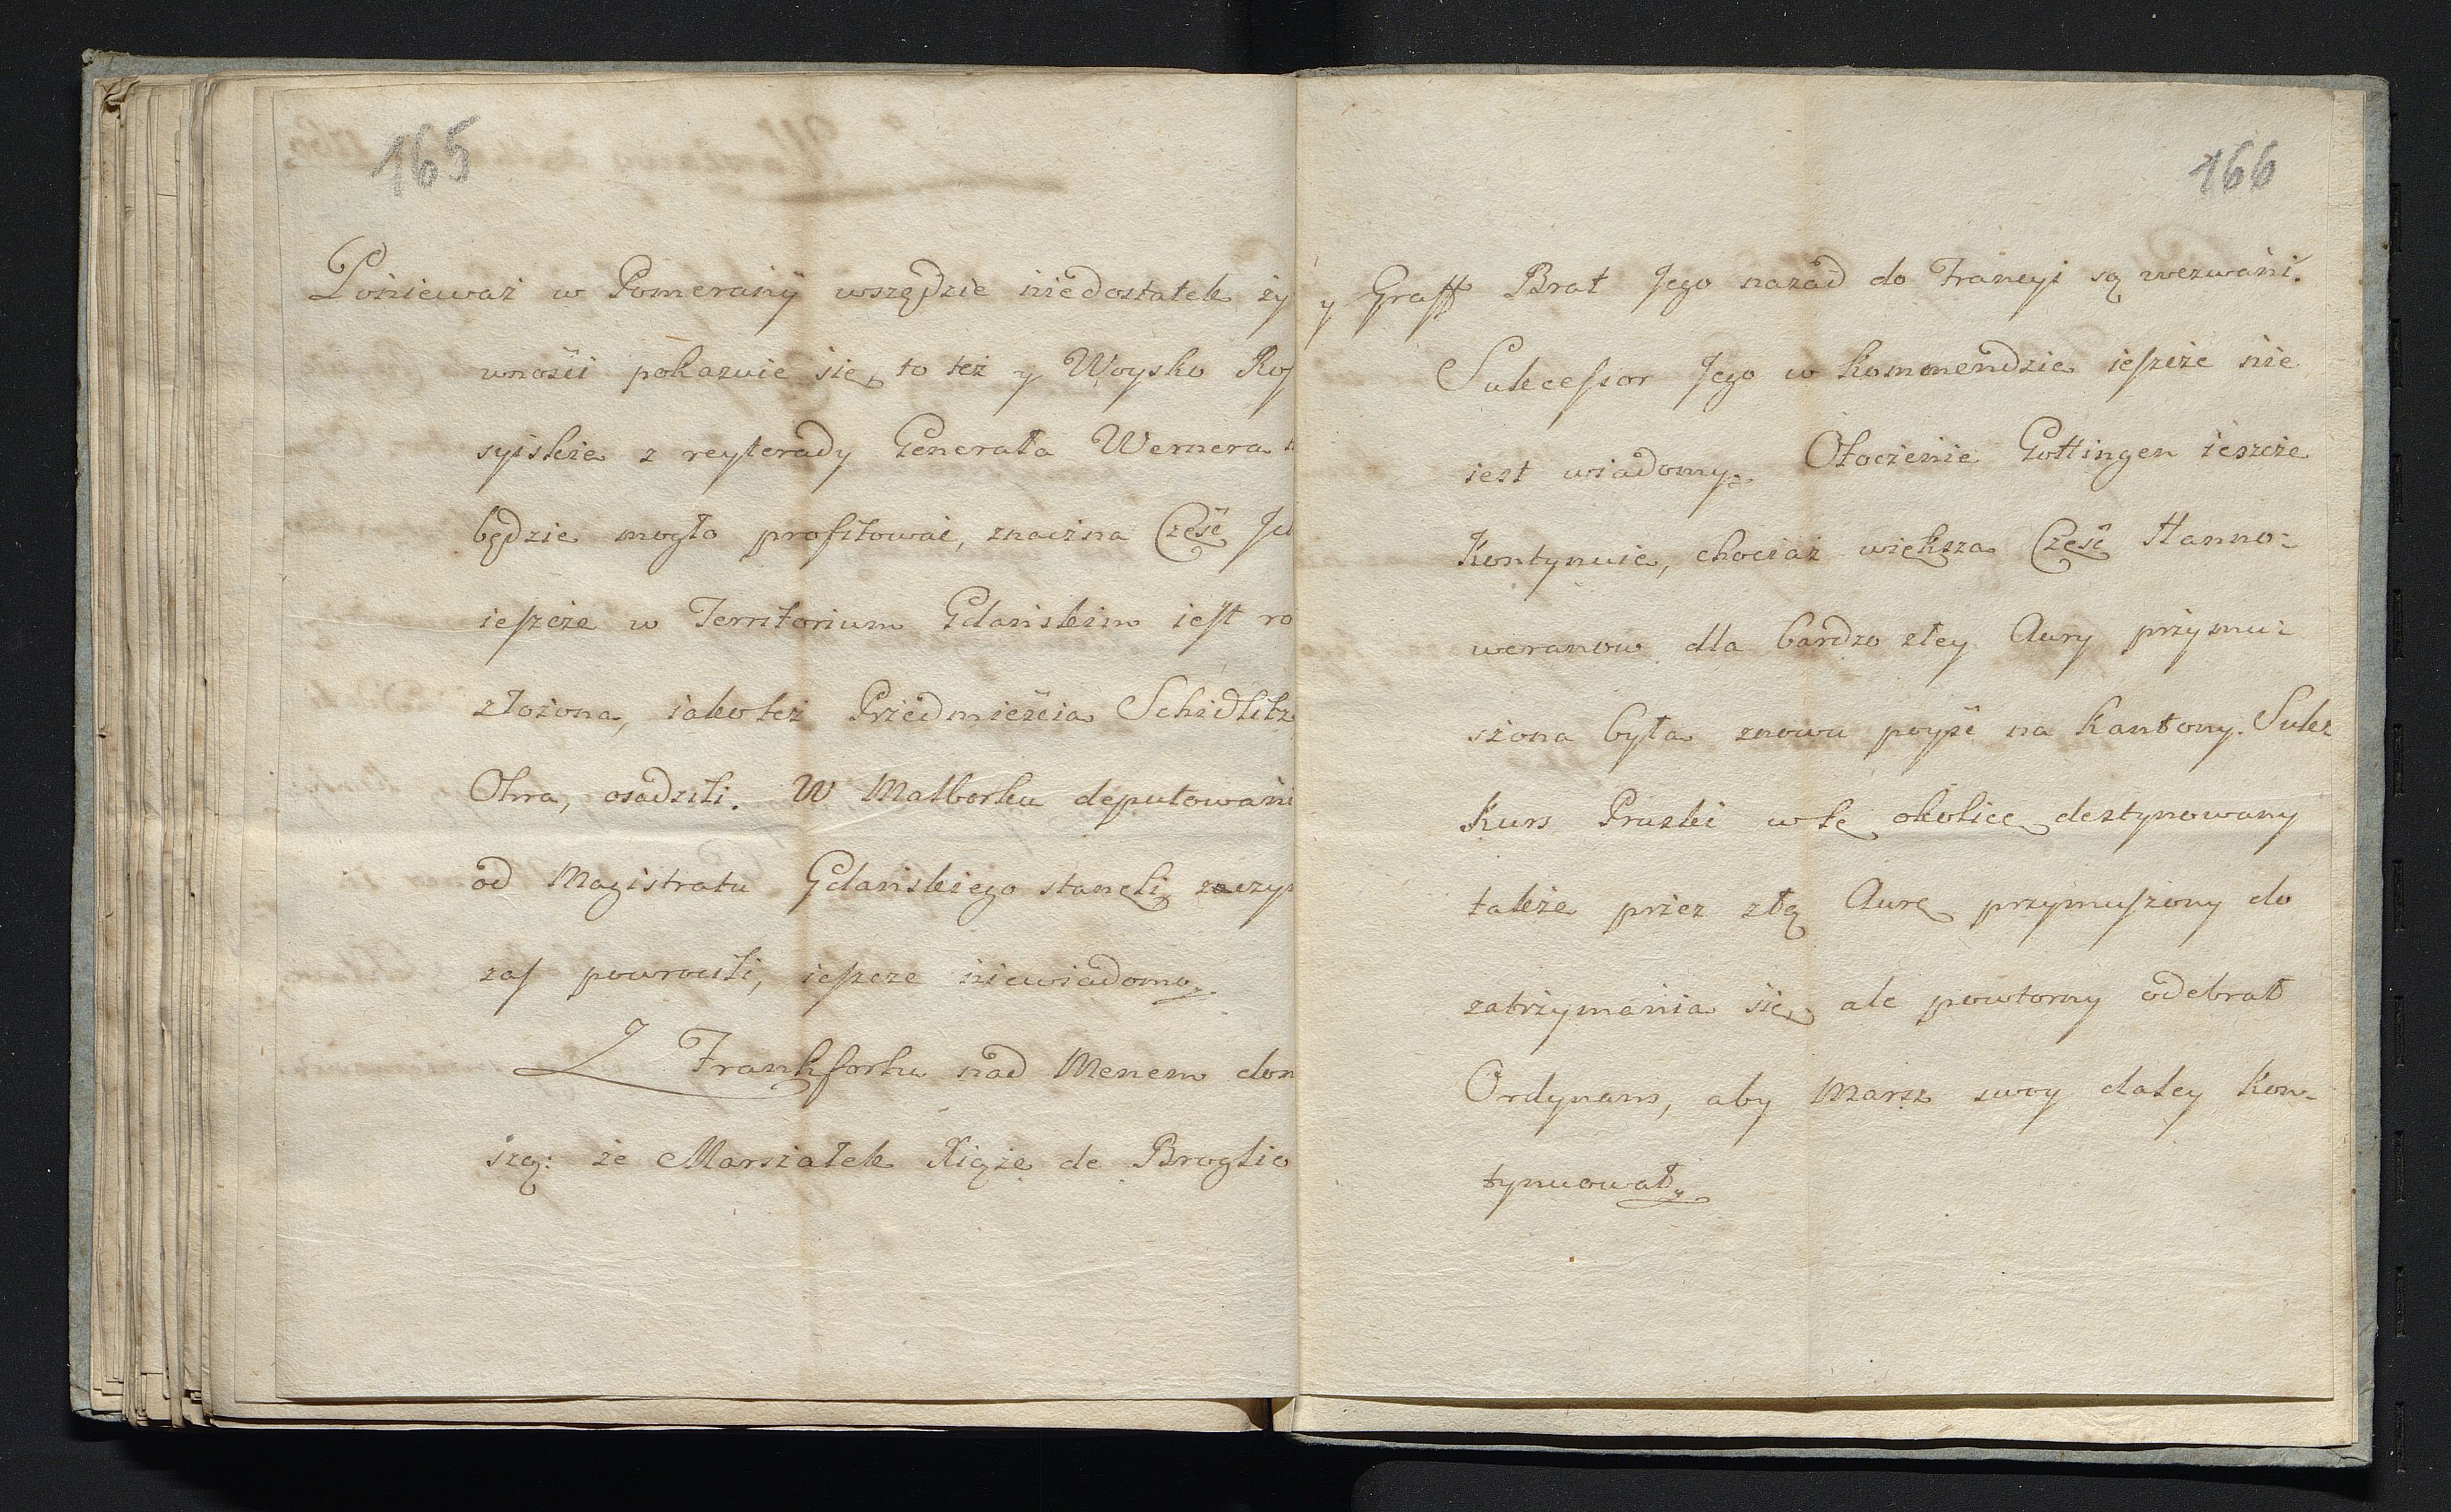 165
Poniewaz w Pomeranij wszędzie niedostatek zy
wnosci pokazuie się, to tez y Woysko Ros
syiskie z reyterady Generała Wernera
będzie mogło profitowac, znaczna Częsc Je
ieszcze w Territorium Gdanskim iest ro
złozona, iako tez Przedmiescia Schidlitz
Ohra, osadzili. W Malborku deputowani
od Magistratu Gdanskiego staneli, z czym
zas powrocili, ieszcze niewiadomo.
Z Frankfortu nad Menem don
szą: ze Marszałek Xiąze de Broglio
166
y Graff Brat Jego nazad do Francyi są wezwani.
Sukcessor Jego w Kommendzie ieszcze nie
iest wiadomy. Otoczenie Gottingen ieszcze
Kontynuie, chociaz większa Częsc Hanno-
weranow dla bardzo złey Aury przymu-
szona była znowu poysc na Kantony. Suk-
Kurs Pruski w tę okolicę destynowany
takze przez złą Aurę przymuszony do
zatrzymania się, ale powtorny odebrał
Ordynans, aby Marsz swoy daley Kon-
tynuował.